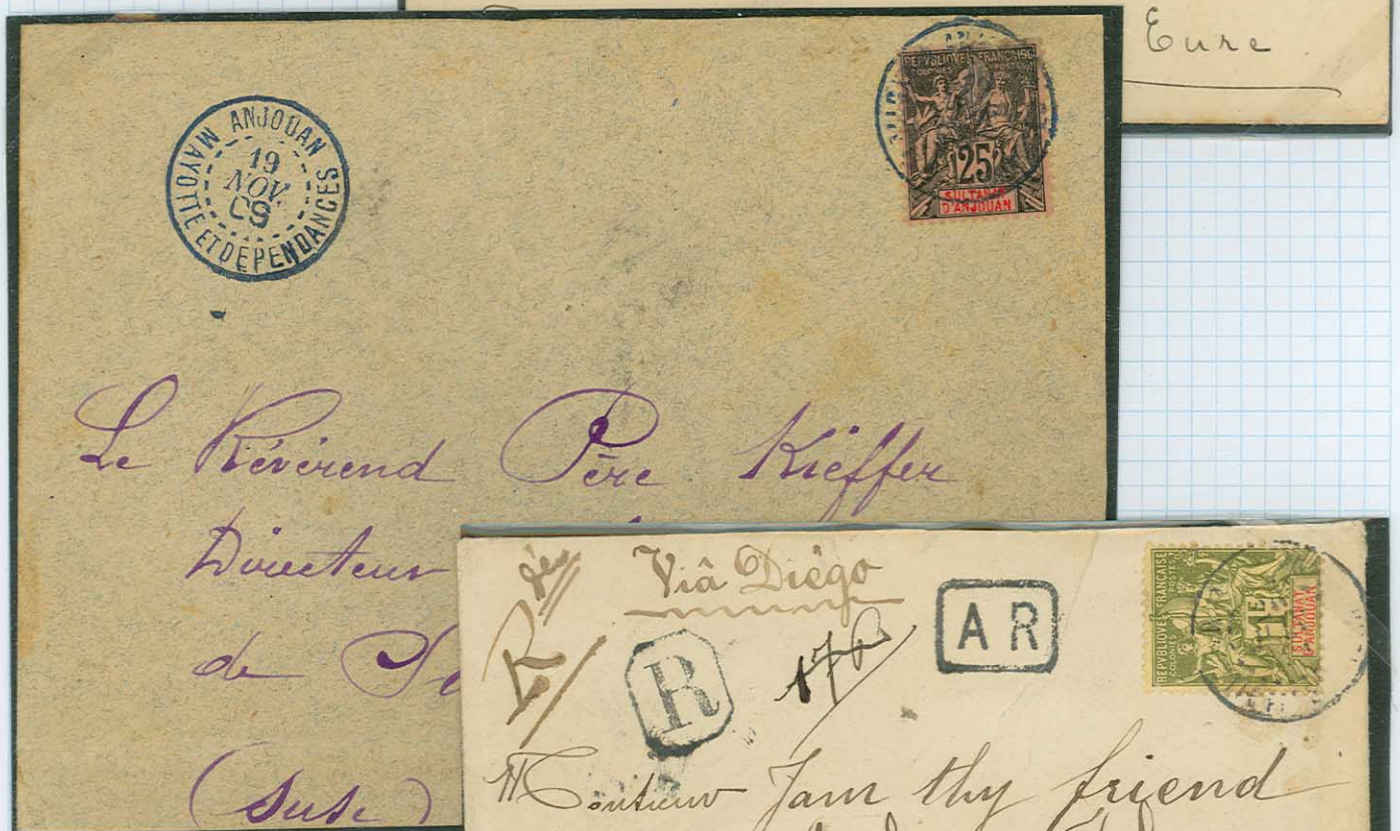 Eure
ANJOUAN
19
NOV
09
MAYOTTE ET DEPENDANCES
REPVBLIQVE FRANÇAISE
COLONIES POSTES
25
SULTANAT
D'ANJOUAN
Le Révérend Père Kieffer
Directeur
de
(Suse)
R
Viâ Diégo
R
AR
REPVBLIQVE FRANÇAISE
COLONIES POSTES
1F
SULTANAT
D'ANJOUAN
Monsieur Jam thy friend